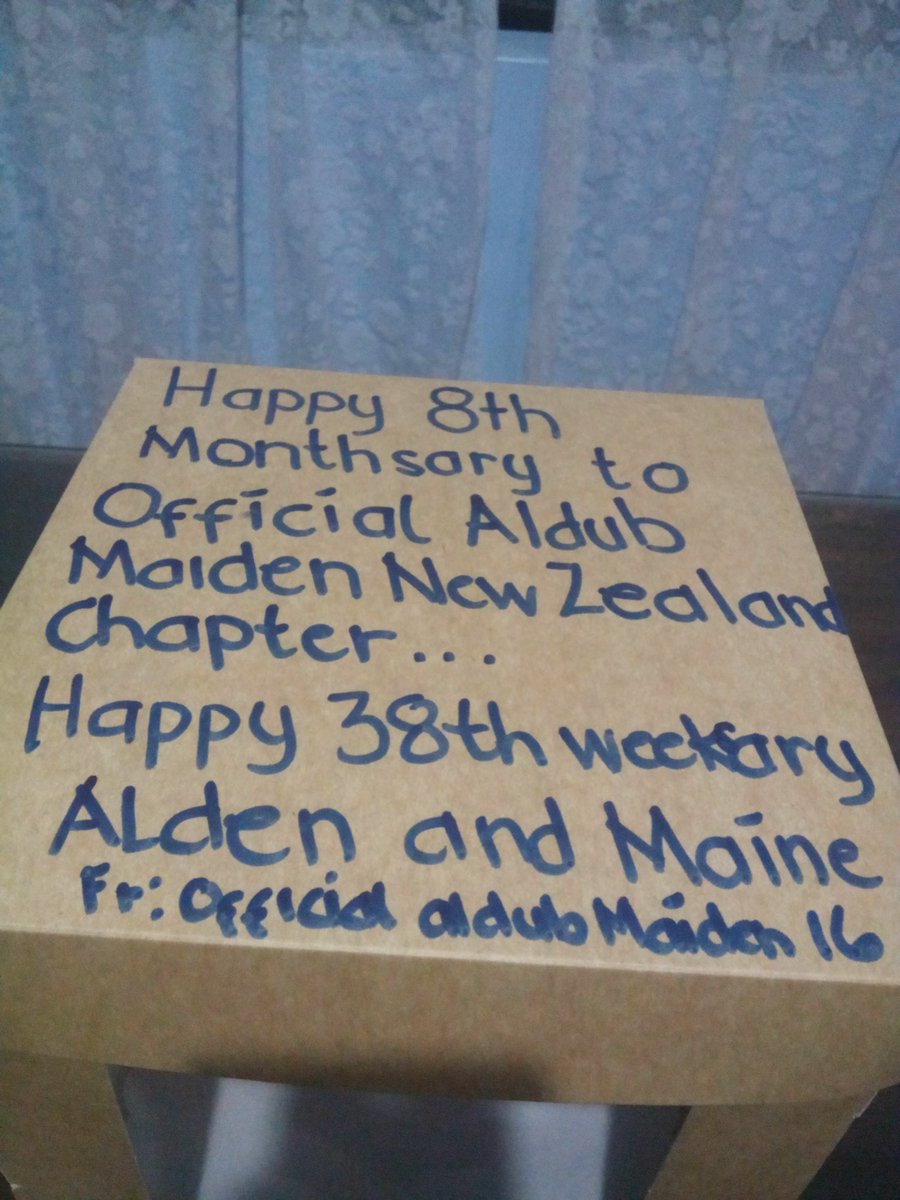 Happy 8th
Monthsary to
Official Aldub
Maiden New Zealand
Chapter...
Happy 38th weeksary
ALden and Maine
Fr: Official aldub Maiden 16